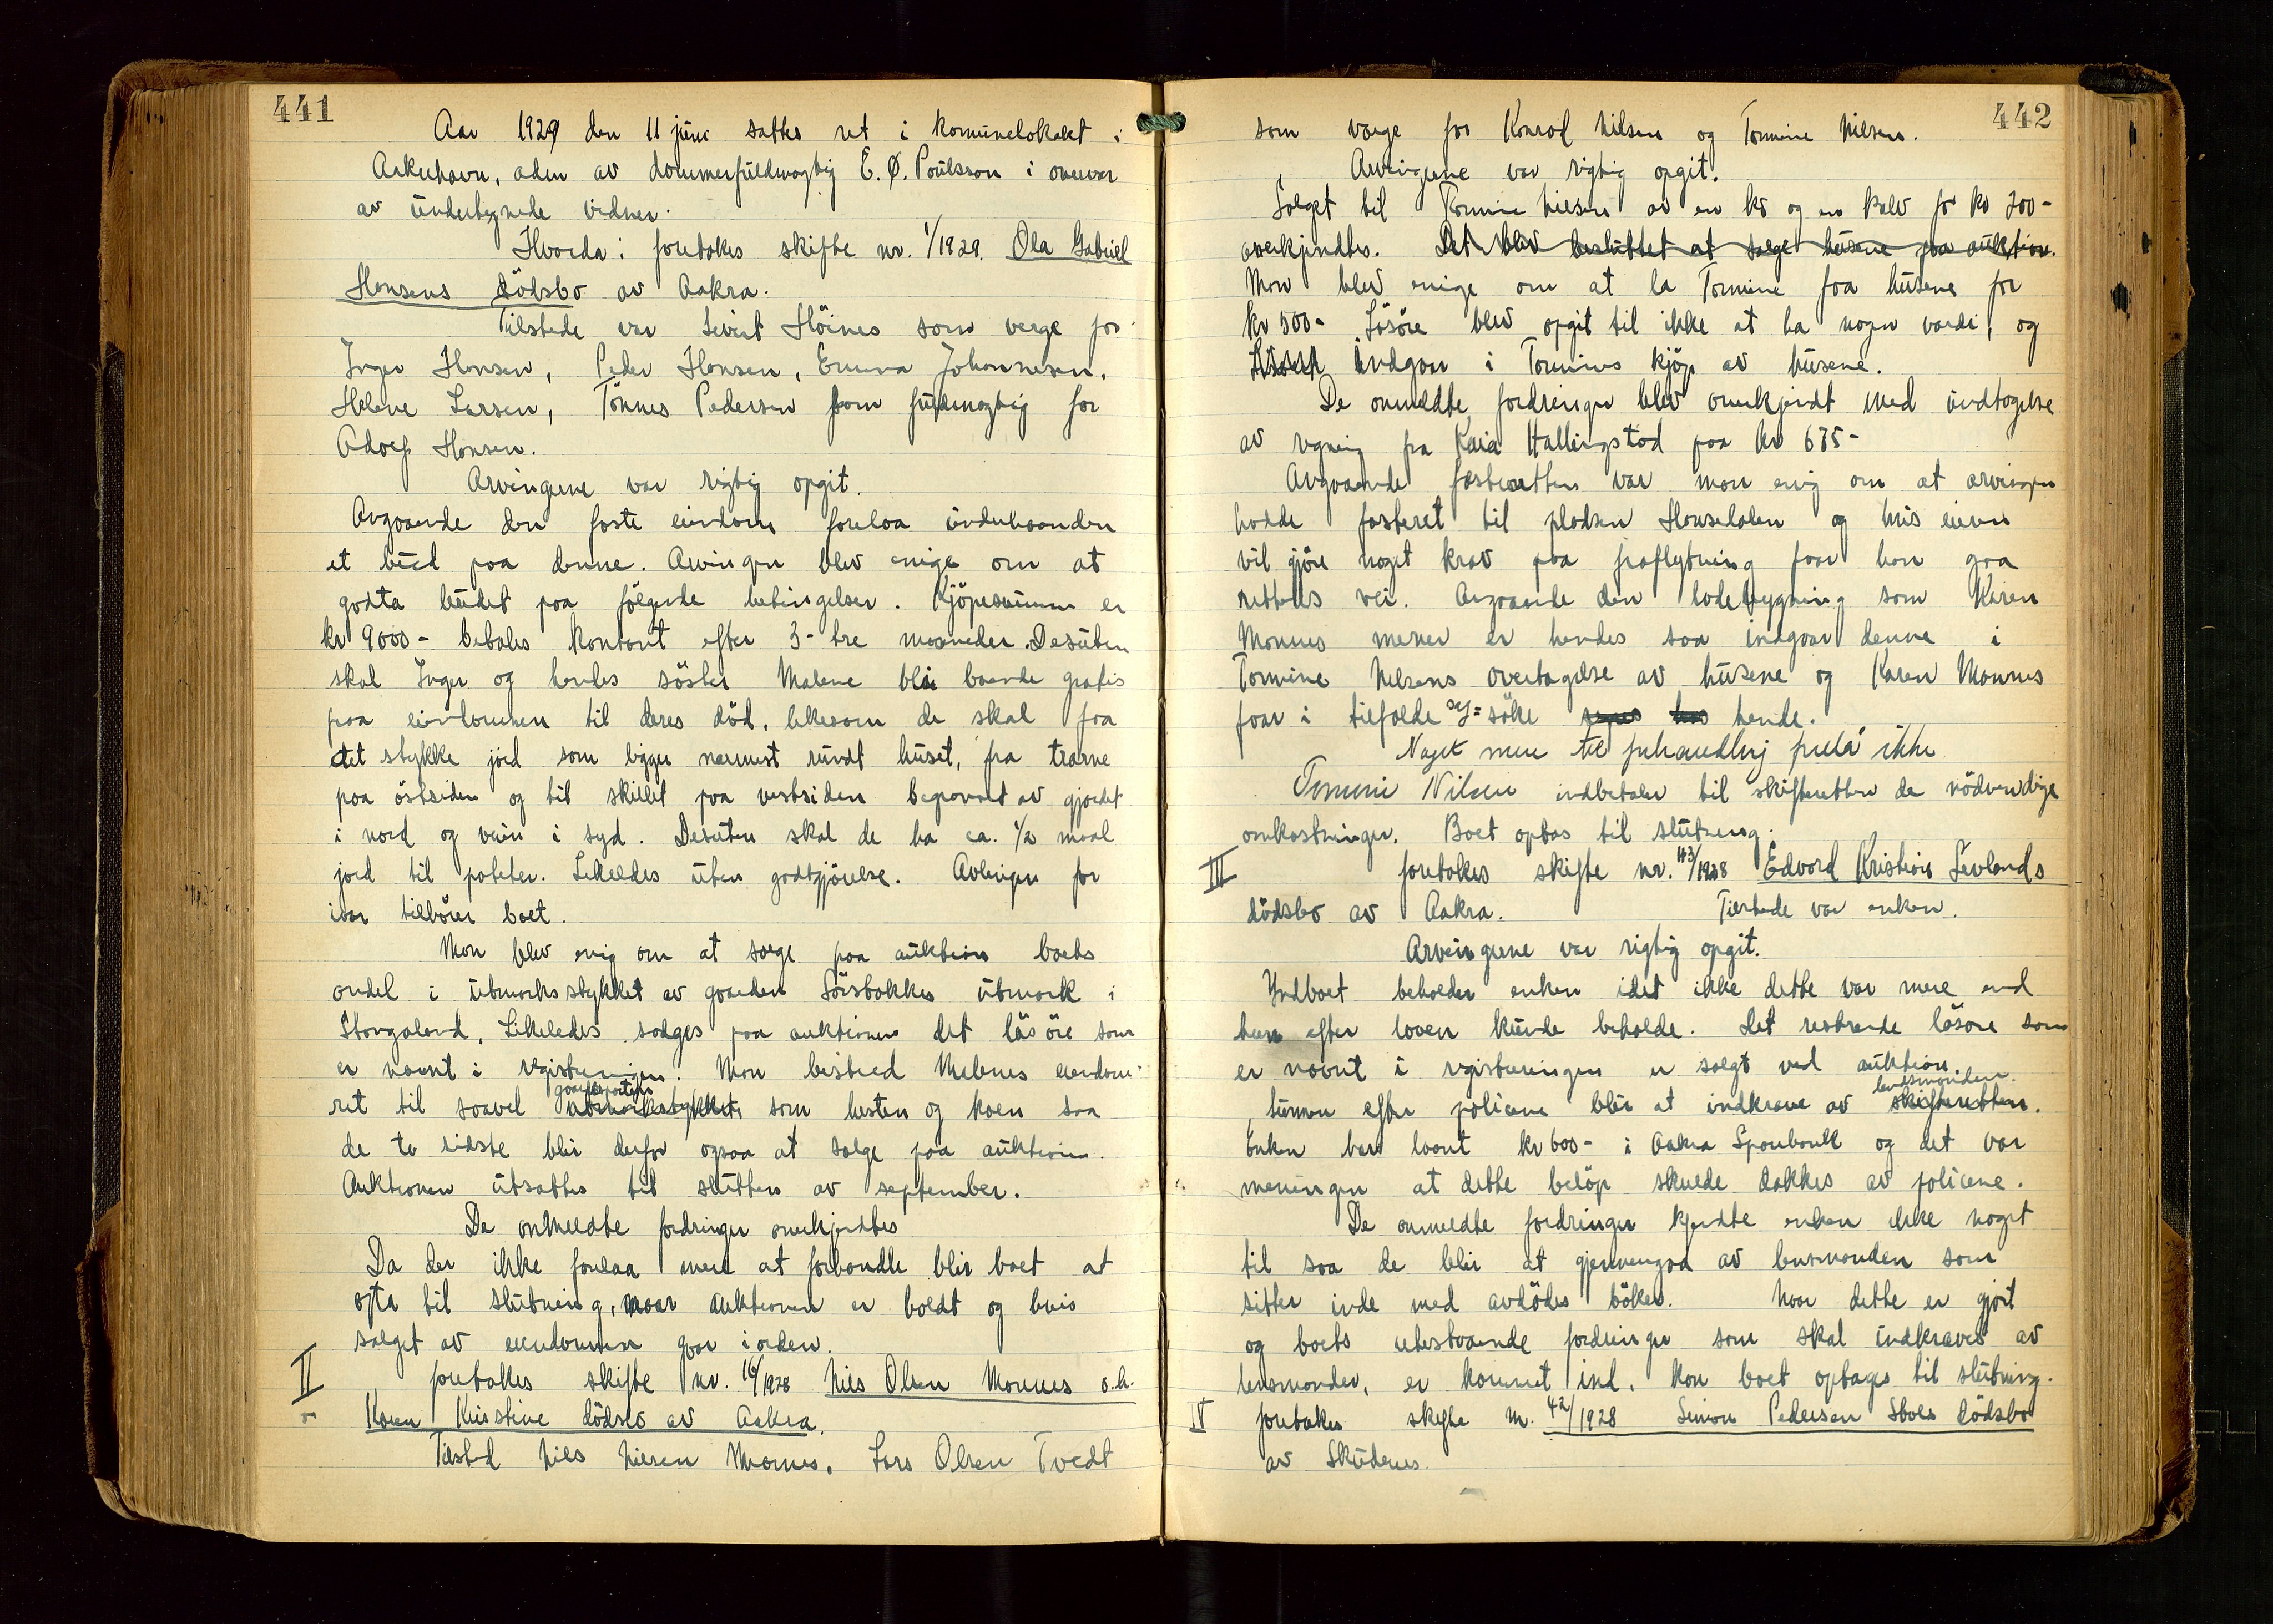 441
Aar 1929 den 11 juni sattes ret i komunelokalet i
Aakrehavn, aden av dommerfuldmægtig E. Ø. Poulsson i overvær
av undertegnede vidner.
Hvorda: foretokes skifte nr. 1/1929. Ola Gabriel
Hansens dödsbo av Aakra.
Tilstede var Sivert Höines som verge for
Inger Hansen, Peder Hansen, Emma Johannesen,
Helene Larsen, Tönnes Pedersen som fuldmægtig for
Adolf Hansen.
Arvingerne var rigtig opgit.
Angaaende den faste eiendom forelaa underhaanden
et bud paa denne. Arvingen blev enige om at
godta budet paa fölgende betingelser. Kjöpesummen er
kr 9000- betales kontant efter 3-tre maaneder. Desuten
skal Inger og hendes söster Malene bli boende gratis
paa eiendommen til deres död, likesom de skal faa
det stykke jord som ligger nærmest rundt huset, fra trærne
paa östsiden og til skillet paa vestsiden begrænset av gjærdet
i nord og veien i syd. Desuten skal de ha ca. 1/2 maal
jord til poteter. Likeledes uten godtgjörelse. Avlingen for
iaar tilhörer boet.
Man blev enig om at sælge paa auktion boets
andel i utmarksstykket av gaarden Sörstokkes utmark i
Stangaland. Likeledes sælges paa auktionen det lösöre som
er nævnt i registreringen. Man bestred Malenes eiendoms
ret til saavel utmarksstykket gaardsparten som hesten og koen saa
de to sidste blir derfor ogsaa at sælge paa auktionen.
Auktionen utsattes til slutten av september.
De anmeldte fordringer anerkjendtes
Da der ikke forelaa mere at forhandle blir boet at
opta til slutning, naar auktionen er holdt og hvis
salget av eiendommen gaar iorden.
II foretokes skifte nr. 16/1928 Nils Olsen Mannes o.h.
Karen Kristine dödsbo av Aakra.
Tilsted Nils Nilsen Mannes, Lars Olsen Tvedt
442
som verge for Konrad Nilsen og Tomine Nilsen.
Arvingerne var rigtig opgit.
Salget til Tomine Nilsen av en ko og en kalv for kr 200-
anerkjendtes. Det blev besluttet at sælge husene paa auktion.
Man blev enige om at la Tomine faa husene for
kr 500- Lösöre blev opgit til ikke at ha nogen værdi, og
indgaar i Tomines kjöp av husene.
De anmeldte fordringer blev anerkjendt med undtagelse
av regning fra Kaia Hallingstad paa kr 675-
Angaaende festeretten var man enig om at arvingen
hadde festeret til pladsen Hansedalen og hvis eieren
vil gjöre noget krav paa fraflytning faar han gaa
rettens vei. Angaaende den ladebygning som Karen
Mannes mener er hendes saa indgaar denne i
Tomine Nilsens overtagelse av husene og Karen Mannes
faar i tilfælde sag-söke hende.
Noget mere til forhandling forelå ikke
Tomine Nilsen indbetaler til skifteretten de nödvendige
omkostninger. Boet optas til slutning.
III foretokes skifte nr. 43/1928 Edvard Kristian Sævlands
dödsbo av Aakra. Tilstede var enken.
Arvingerne var rigtig opgit.
Indboet beholder enken idet ikke dette var mere end
hun efter loven kunde beholde. Det resterende lösöre som
er nævnt i registreringen er solgt ved auktion.
Summen efter policene blir at indkræve av skifteretten. lensmanden.
Enken har laant kr 600- i Aakra Sparebank og det var
meningen at dette belöp skulde dækkes av policene.
De anmeldte fordringer kjendte enken ikke noget
til saa de blir at gjennemgaa av lensmanden som
sitter inde med avdödes böker. Naar dette er gjort
og boets utestaaende fordringer som skal indkræves av
lensmanden, er kommet ind, kan boet optages til slutning.
IV foretokes skifte nr. 42/1928 Simon Pedersen Stoes dödsbo
av Skudenes.